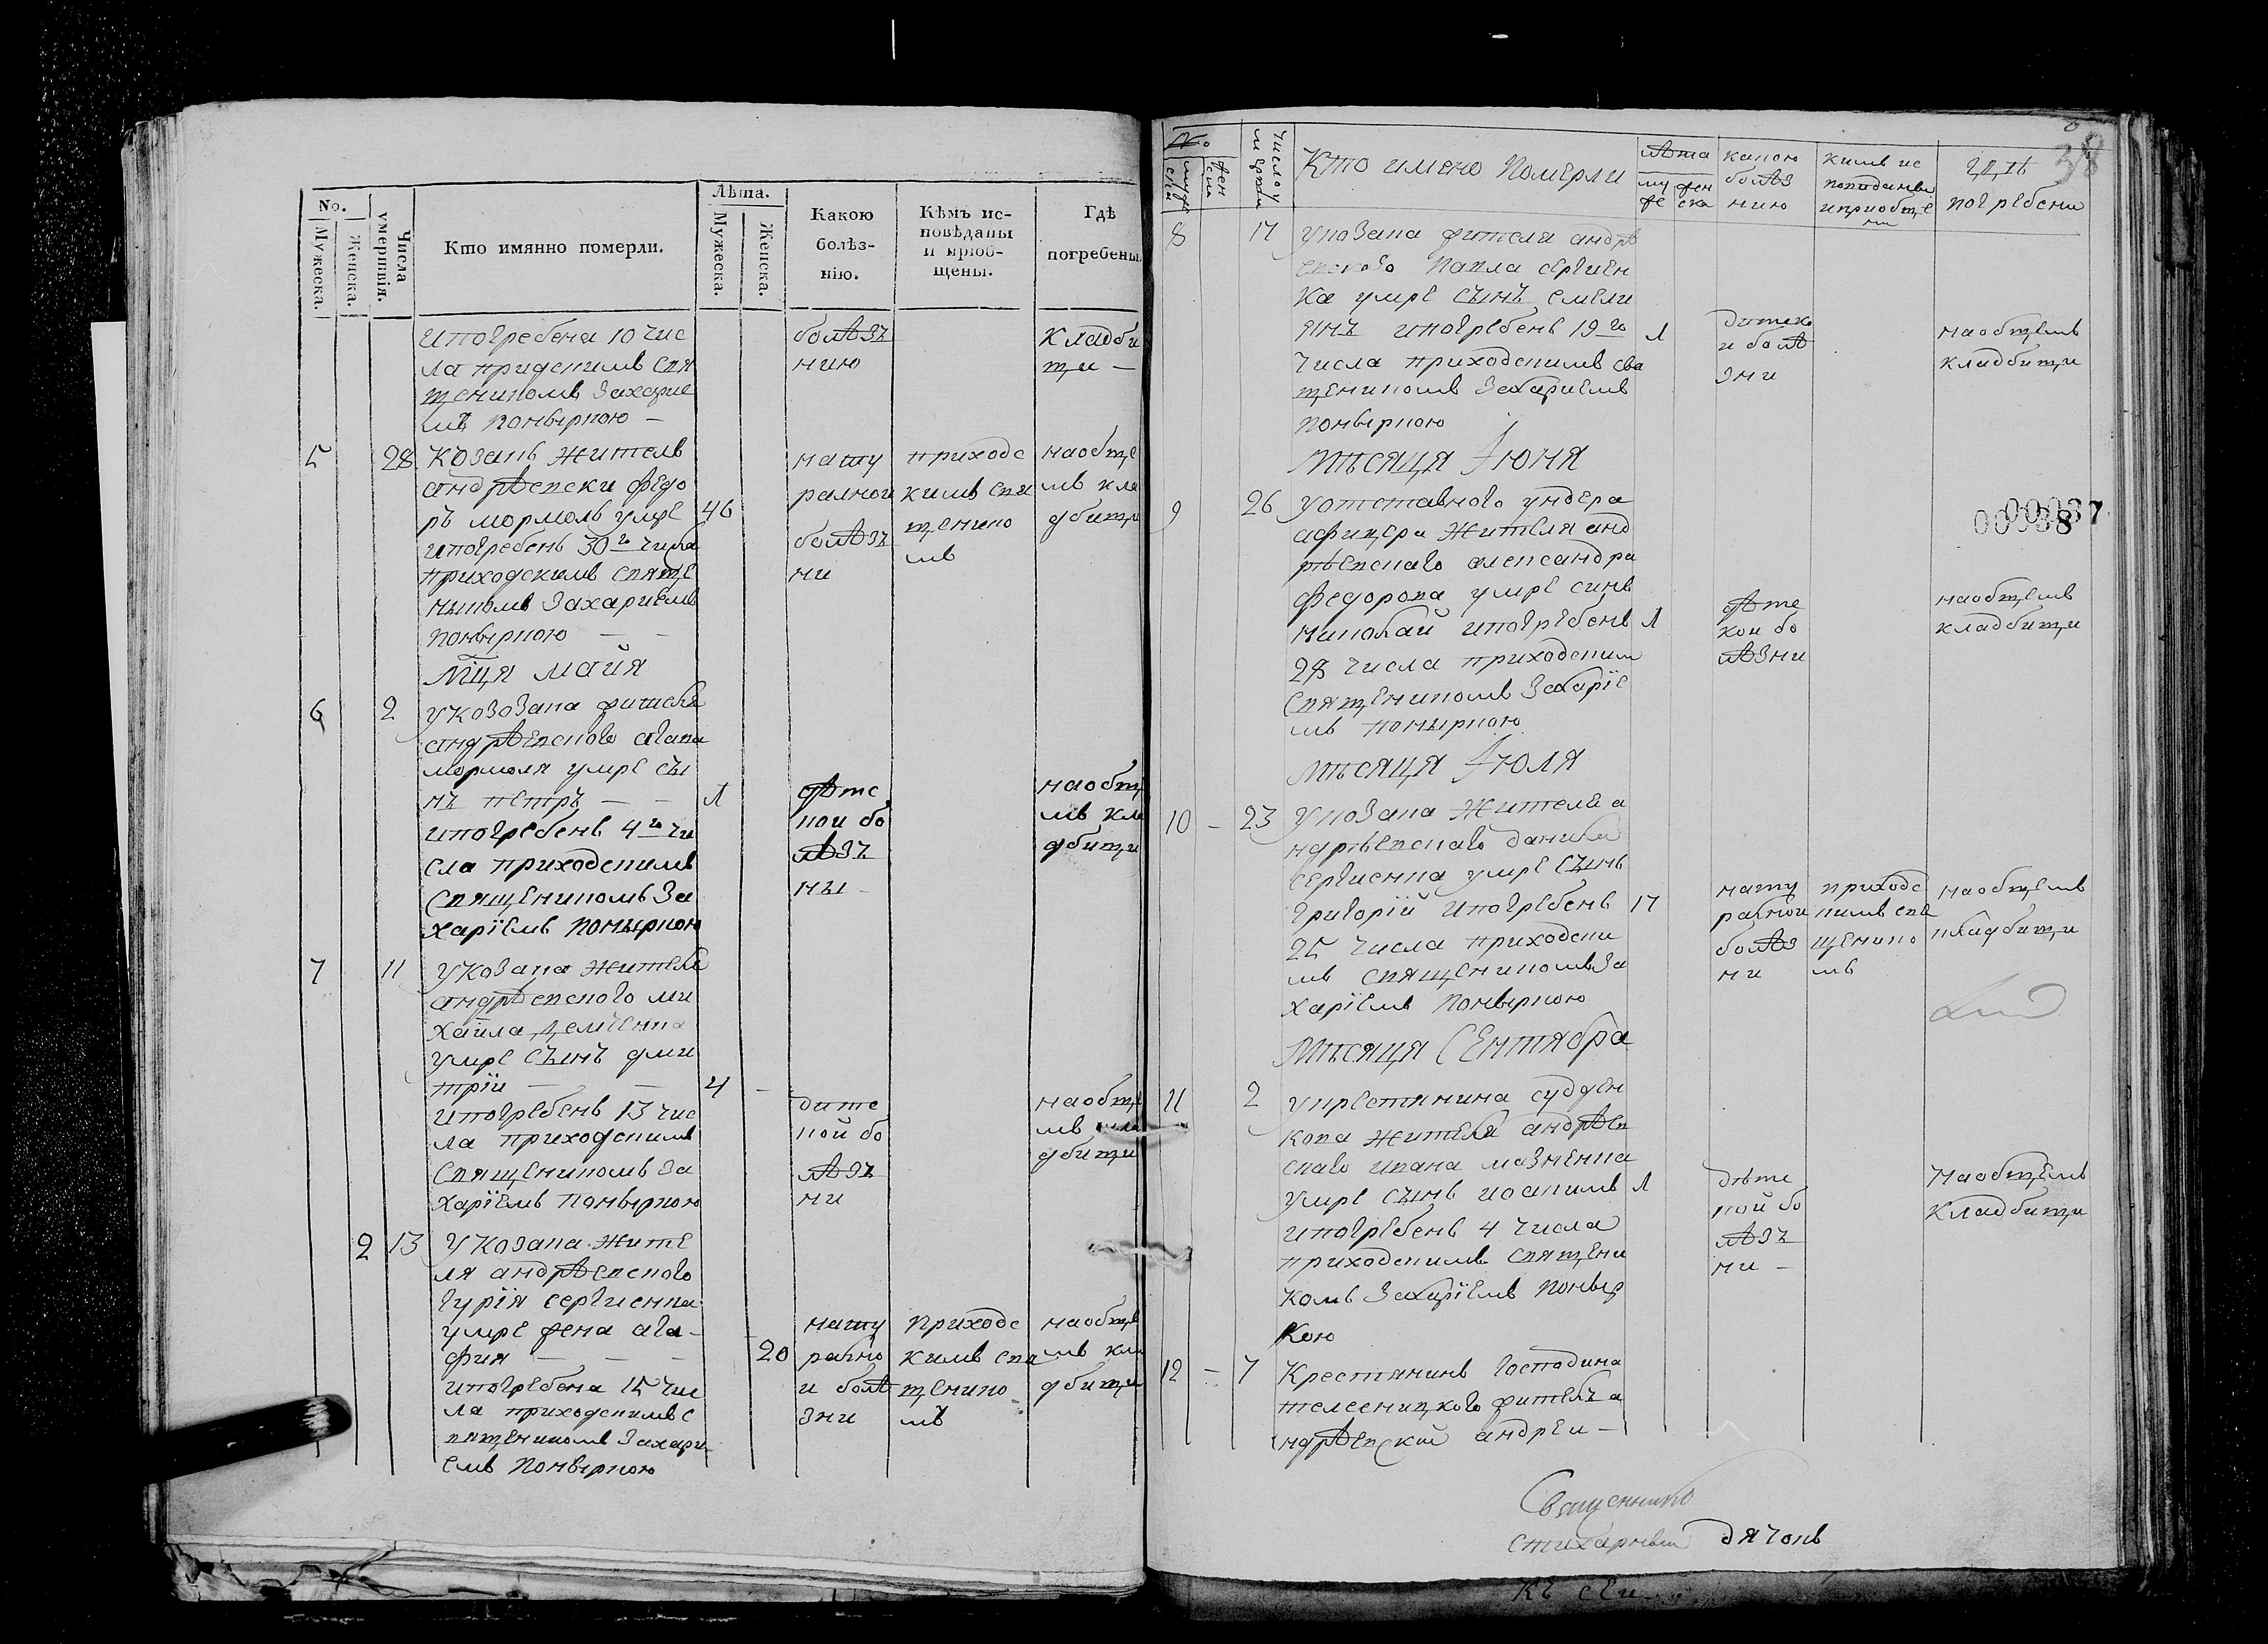 No.
Мужеска.
Женска.
Числа умертвія.
Кто имянно померли.
Лѣта.
Мужеска.
Женска.
Какою болѣз-нію.
Кѣмъ ис-повѣданы и пріоб-щены.
Гдѣ погребены.
ипогребена 10 чис
ла приденимъ свя
щеникомъ Захарие
мъ Поныркою —
болѣзъ
нию
кладби
щи —
5 28 козакъ житель
андрѣевски федо
ръ мормоль умре 46
ипогребенъ 30го числа
приходскимъ свяще
ныкомъ Захариемъ
Поныркою — —
нату
ралнои
болѣзъ
ни
приходс
кимъ свя
щенико
мъ
наобще
мъ кла
дбищи
Мця майя
6 2 укозака жителя
андрѣевского агапа
мормоля умре сы
нъ петръ — — 1
ипогребенъ 4го чи
сла приходскимъ
священикомъ За
харіемъ Поныркою
дѣтс
кои бо
лѣзъ
ны —
наобщ
мъ кла
дбищи
7 11 укозака жителя
андрѣевского ми
хаила демиенка
умре сынъ дми
трій — — 4 —
ипогребенъ 13 чис
ла приходскимъ
священикомъ За
харіемъ Поныркою
дите
кой бо
лѣзъ
ни
наобще
мъ кла
дбищи
2 13 укозака жите
ля андрѣевского
гурія сергиенка
умре жена ага-
фия — — — 20
ипогребена 15 чис
ла приходскимъ с
вящеником Захари
емъ Поныркою
нату
рално
и болѣ
зни
приходс
кимъ свя
щенико
мъ
наобще
мъ кла
дбищи
38
№.
мужеска
женска
число умертвія
Кто имено померли
лѣта
муже
женска
какою болѣзнию
кимъ исповиданы иприобщени
гдѣ погребени
8 17 укозака жителя андрѣ
евского павла сергиен
ка умре сынъ емели
янъ ипогребенъ 19го 1
числа приходскимъ свя
щеникомъ Захариемъ
Поныркою
дитско
и болѣ
зни
наобщемъ
кладбищи
мѣсяця Июня
9 26 уотставного ундера
афицера жителя анд
рѣевскаго александра
федорова умре синъ
николай ипогребенъ 1
28 числа приходским
священикомъ Захаріе
мъ Поныркою
дѣте
кои бо
лѣзни
наобщемъ
кладбищи
00037
00038
мѣсяця Июля
10 – 23 укозака жителя а
ндрѣевскаго данила
сергиенка умре сынъ
григорій ипогребенъ 17
25 числа приходски
мъ священикомъ За
харіемъ Поныркою
нату
ралнои
болѣз
ни
приходс
кимъ свя
щенико
мъ
наобщемъ
кладбищи
мѣсяця Сентября
11 2 укрестянина суджен
кова жителя андрѣев
скаго ивана мазненка
умре сынъ иоакимъ 1
ипогребенъ 4 числа
приходскимъ священи
комъ Захаріемъ Поныр
кою
дѣте
кой бо
лѣзъ
ни –
наобщемъ
кладбищи
12 – 7 Крестянинъ господина
жителъ а
ндрѣевский андреи —
Священникъ
стихарный дячокъ
къ сеи